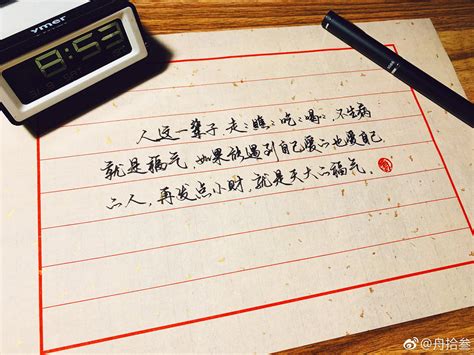 ymer
8:53
人这一辈子,走〻瞧〻吃〻喝〻,不生病
就是福气,如果能遇到自己爱的也爱自己
的人,再发点小财,就是天大的福气。
@舟拾叁